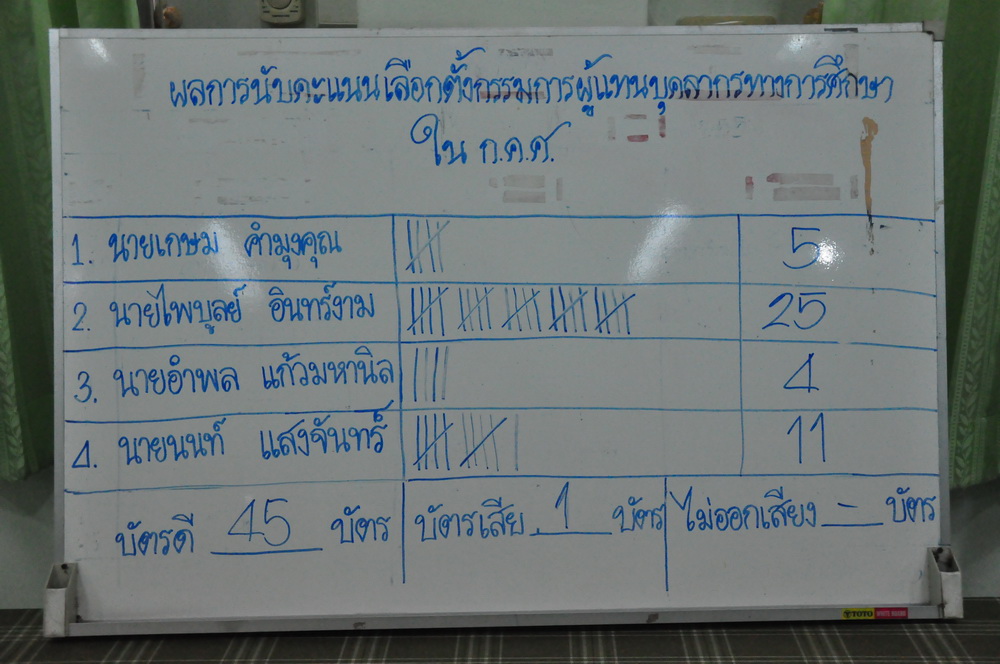 ผลการนับคะแนนเลือกตั้งกรรมการผู้แทนบุคลากรทางการศึกษา
ใน ก.ค.ศ.
1. นายเกษม คำมุงคุณ 5
2. นายไพบูลย์ อินทร์งาม 25
3. นายอำพล แก้วมหานิล 4
4. นายนนท์ แสงจันทร์ 11
บัตรดี 45 บัตร บัตรเสีย 1 บัตร ไม่ออกเสียง - บัตร
TOTO WHITE BOARD